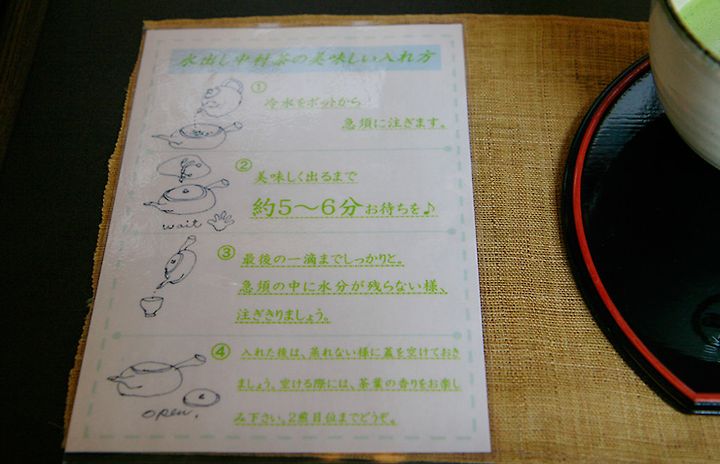 水出し中村茶の美味しい入れ方
①
冷水をポットから
急須に注ぎます。
②
美味しく出るまで
約5〜6分お待ちを♪
wait
③
最後の一滴までしっかりと。
急須の中に水分が残らない様、
注ぎきりましょう。
④
入れた後は、蒸れない様に蓋を空けておき
ましょう。空ける際には、茶葉の香りをお楽し
み下さい。2煎目位までどうぞ。
open.